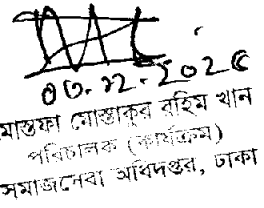 ০৩.১২.২০২৫
মোস্তফা মোস্তাকুর রহিম খান
পরিচালক (কার্যক্রম)
সমাজসেবা অধিদপ্তর, ঢাকা